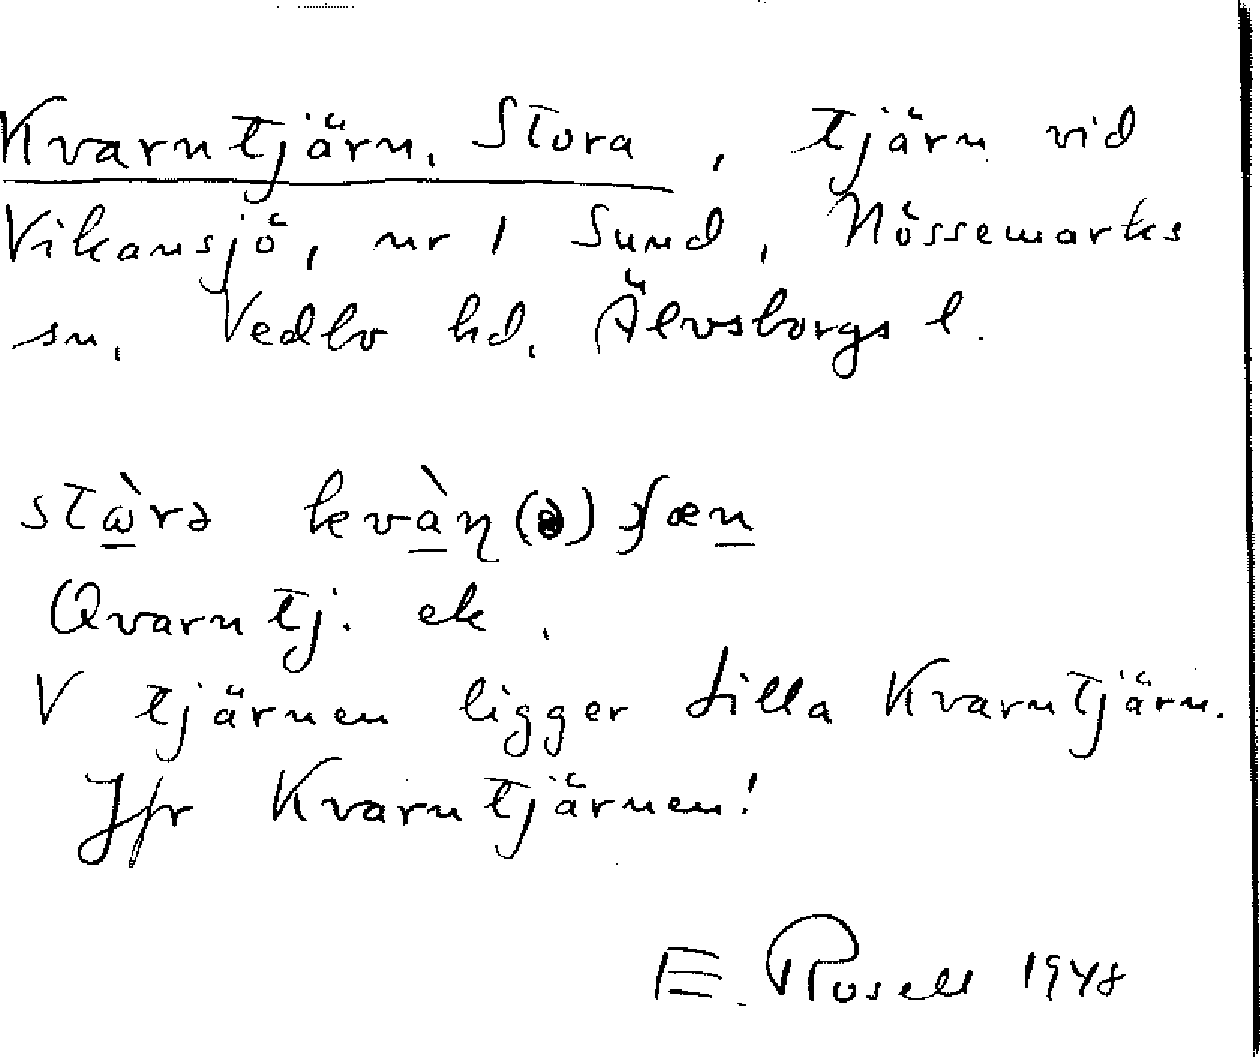 Kvarntjärn, Stora, tjärn vid
Vikansjö, nr 1 Sund, Nössemarks
sn, Vedbo hd, Älvsborgs l.
Qvarntj. ek.
V tjärnen ligger Lilla Kvarntjärn.
Jfr Kvarntjärnen!
E. Rosell 1948